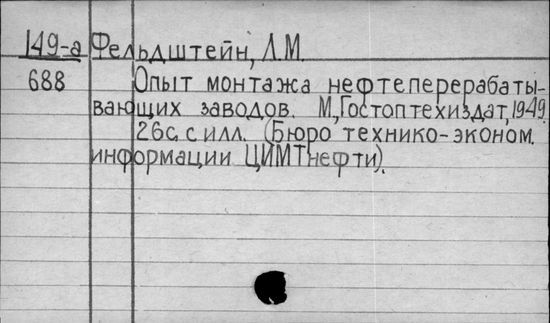 149-а Фельдштейн, Л.М.
688 Опыт монтажа нефтеперерабаты-
вающих заводов. М., Гостоптехиздат, 1949
26с. с илл. (Бюро технико-эконом.
информации ЦИМТнефти).